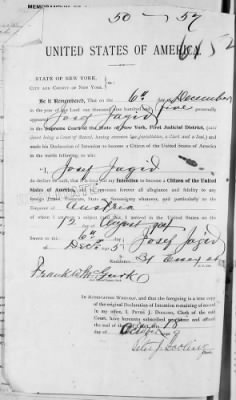 50 - 57
UNITED STATES OF AMERICA.
6152
STATE OF NEW YORK,
CITY AND COUNTY OF NEW YORK.
Be it Remembered, That on the 6th day of December
in the year of our Lord one thousand nine hundred and five personally
appeared Josef Jagid
in the Supreme Court of the State of New York, First Judicial District, (said
Court being a Court of Record, having common law jurisdiction, a Clerk and a Seal,) and
made his Declaration of Intention to become a Citizen of the United States of America
in the words following, to wit:
I, Josef Jagid
do declare on oath, that it is my Intention to become a Citizen of the United
States of America, and to renounce forever all allegiance and fidelity to any
foreign Prince, Potentate, State or Sovereignty whatever, and particularly to the
Emperor of Austria
of whom I am a subject; that I arrived in the United States on the
13 August
Sworn to this 6th
Dec. 5
Josef Jagid
Residence 21 Essex st
IN ATTESTATION WHEREOF, and that the foregoing is a true copy
of the original Declaration of Intention remaining of record
in my office, I, PETER J. DOOLING, Clerk of the said
Court, have hereunto subscribed my name and affixed
the seal of the said Court, this 18
Peter J. Dooling
Clerk.